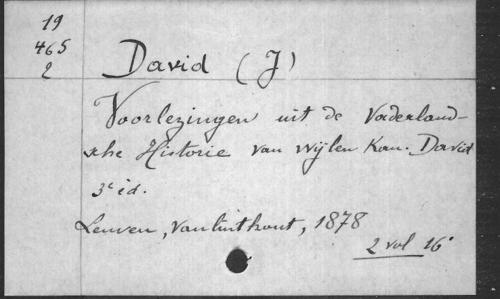 19
465
2
David (J)
Voorlezingen uit de Vaderland-
sche Historie van wijlen Kan. David
3e id.
Leuven, Vanlinthout, 1878
2 vol 16°